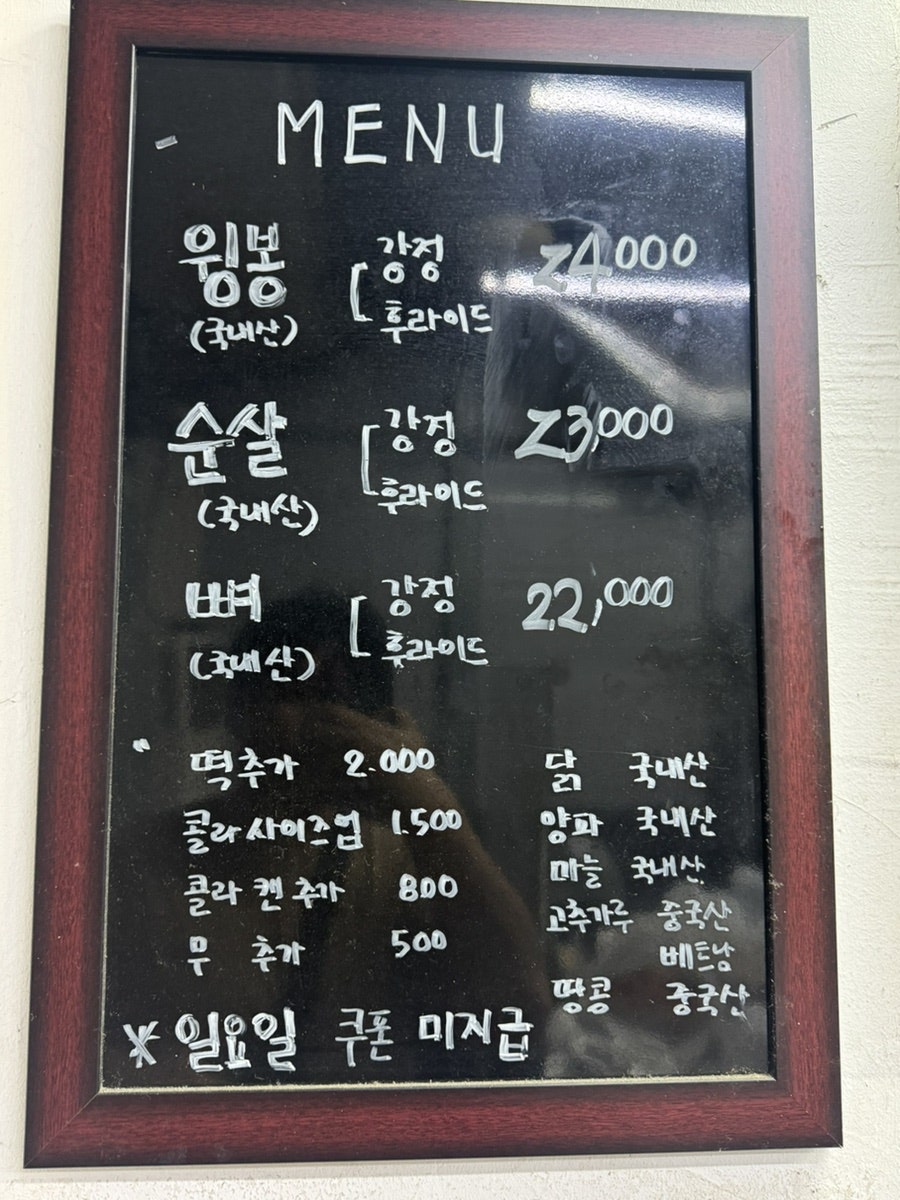 MENU
윙봉 강정 24000
(국내산) 후라이드
순살 강정 23,000
(국내산) 후라이드
뼈 강정 22,000
(국내산) 후라이드
떡추가 2.000
콜라 사이즈업 1.500
콜라 캔 추가 800
무 추가 500
닭 국내산
양파 국내산
마늘 국내산
고추가루 중국산
베트남
땅콩 중국산
※ 일요일 쿠폰 미지급